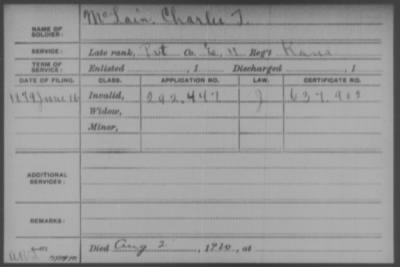 NAME OF SOLDIER: McLain, Charles T.
SERVICE: Late rank, Pvt Co. G, 11 Reg't Kans
TERM OF SERVICE: Enlisted , 1 Discharged , 1
DATE OF FILING. CLASS. APPLICATION NO. LAW. CERTIFICATE NO.
1879 June 16 Invalid, 292.447 J 637.902
Widow,
Minor,
ADDITIONAL SERVICES:
REMARKS:
Died Aug 2 , 1920, at